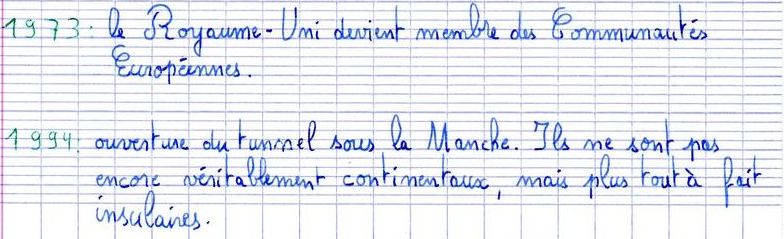 1973: le Royaume-Uni devient membre des Communautés
Européennes.
1994: ouverture du tunnel sous la Manche. Ils ne sont pas
encore véritablement continentaux, mais plus tout à fait
insulaires.